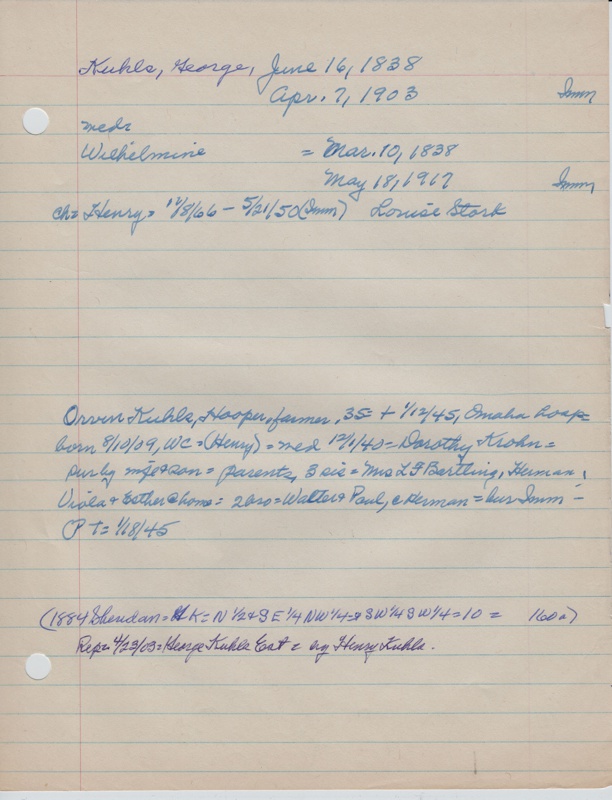 Kuhls, George, June 16, 1838
Apr. 7, 1903 Imm
med=
Wilhelmine = Mar. 10, 1838
May 18, 1917 Imm
ch= Henry= 12/8/66 - 5/21/50 (Imm) Louise Stork
Orven Kuhls, Hooper, farmer, 35 = + 1/12/45, Omaha hosp=
born 8/10/09, WC = (Henry) = med 12/1/40 = Dorothy Krohn =
surby wife & son = parents, 3 sis = Mrs L F Bartling, Herman,
Viola & Esther @ home = 2 bro = Walter & Paul, c Herman = bur Imm -
P T = 1/18/45
(1884 Sheridan = HK = N 1/2 & SE 1/4 NW 1/4 = & SW 1/4 SW 1/4 = 10 = 160a)
Rep= 4/23/03 = George Kuhls Est = by Henry Kuhls.